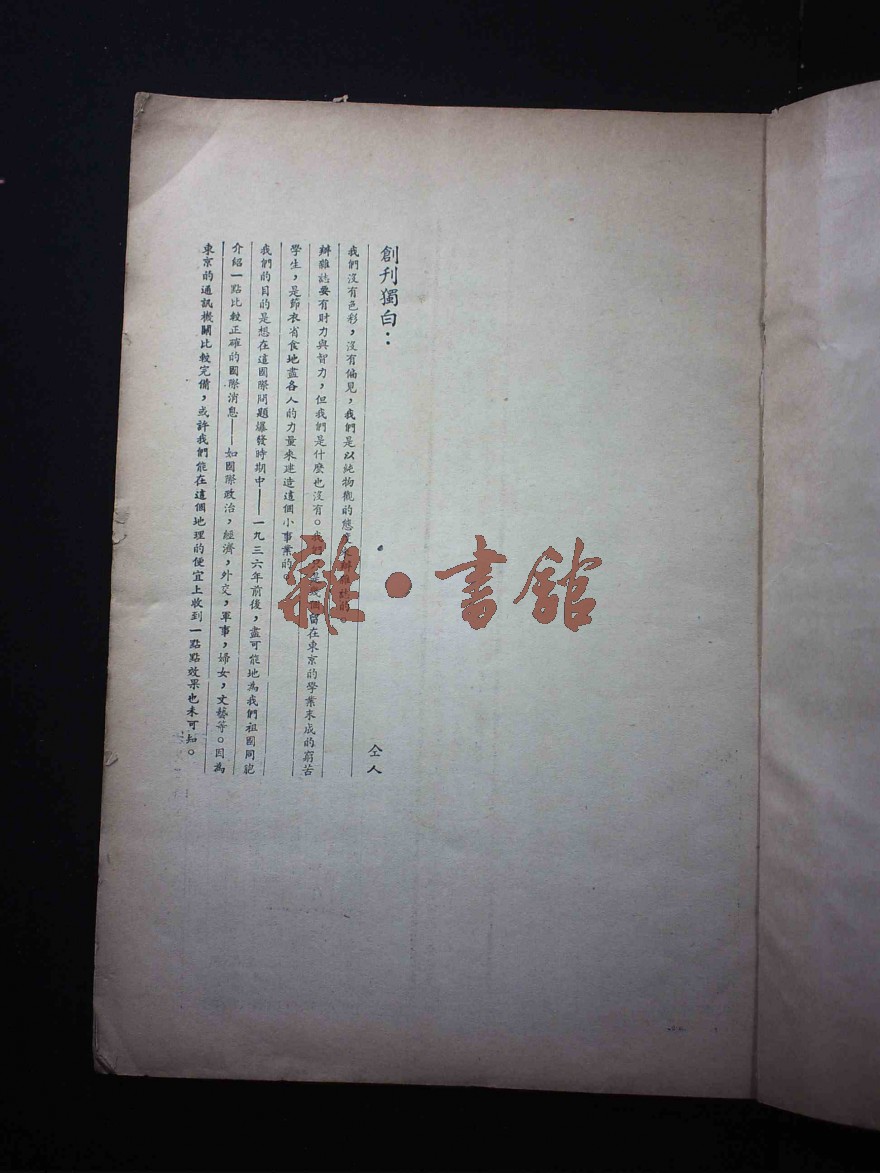 創刊獨白：
仝人
我們沒有色彩，沒有偏見，我們是以純物觀的態度來辦雜誌的
辦雜誌要有財力與智力，但我們是什麼也沒有。我們留在東京的學業未成的窮苦
學生，是節衣省食地盡各人的力量來建造這個小事業的
我們的目的是想在這國際問題爆發時期中——一九三六年前後，盡可能地為我們祖國同胞
介紹一點比較正確的國際消息——如國際政治，經濟，外交，軍事，婦女，文藝等。因為
東京的通訊機關比較完備，或許我們能在這個地理的便宜上收到一點點效果也未可知。
雜·書館